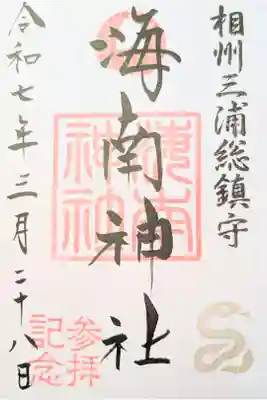 相州三浦総鎮守
海南神社
海南神社
令和七年三月二十八日
参拝記念